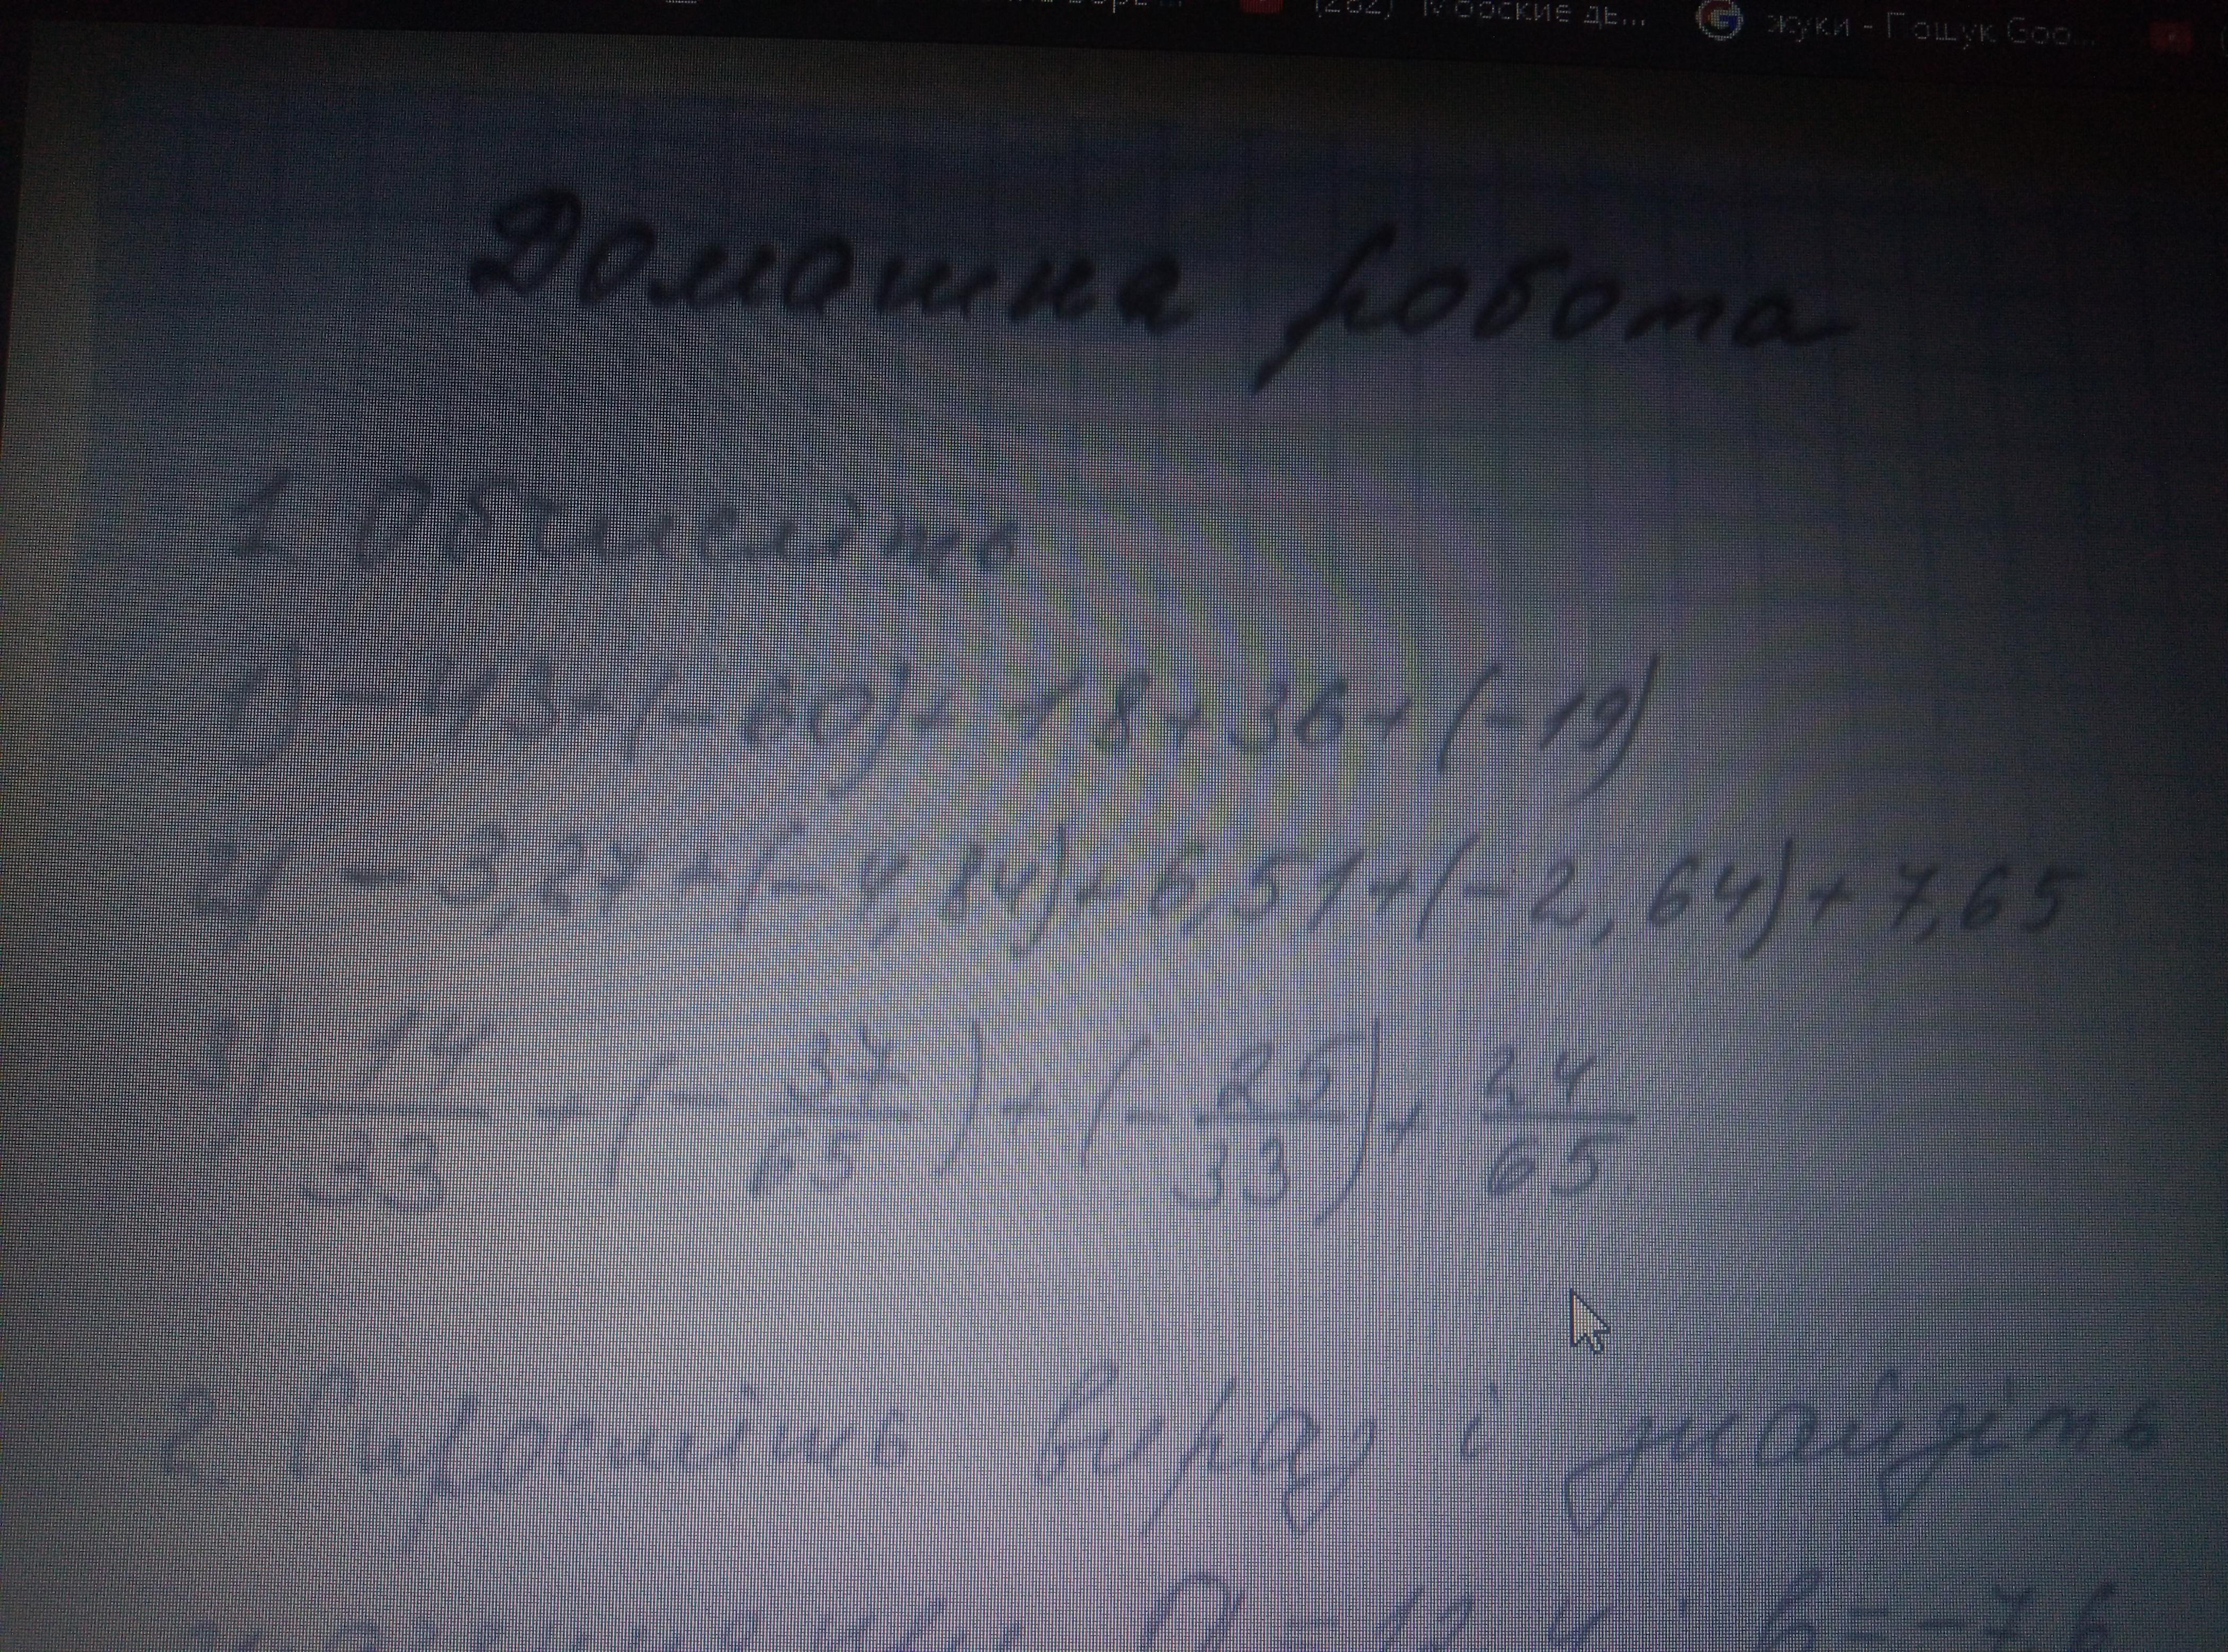 (282) Морские де...
жуки - Пошук Goo...
Домашна робота
1. Обчисліть
1) -43+(-60)+18+36+(-19)
2) -3,27+(-4,84)+6,51+(-2,64)+7,65
3) 14/33 - (-37/65) + (-25/33) + 24/65
2 Спростіть вираз і знайдіть